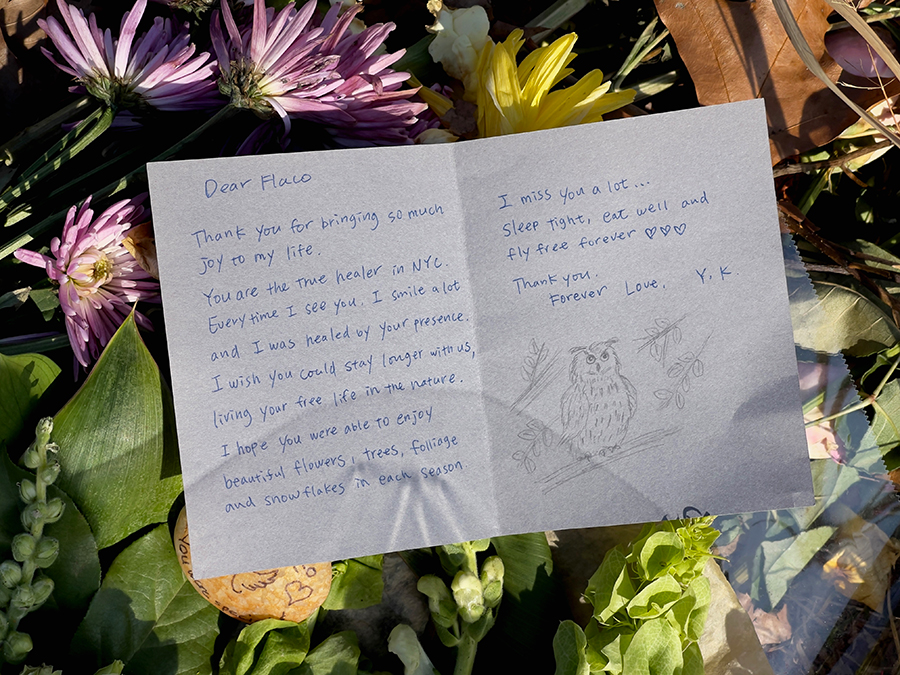 Dear Flaco
Thank you for bringing so much
joy to my life.
You are the true healer in NYC.
Everytime I see you. I smile a lot
and I was healed by your presence.
I wish you could stay longer with us,
living your free life in the nature.
I hope you were able to enjoy
beautiful flowers, trees, folliage
and snowflakes in each season
I miss you a lot...
Sleep tight, eat well and
fly free forever ♡♡♡
Thank you.
Forever Love, Y. K.
You